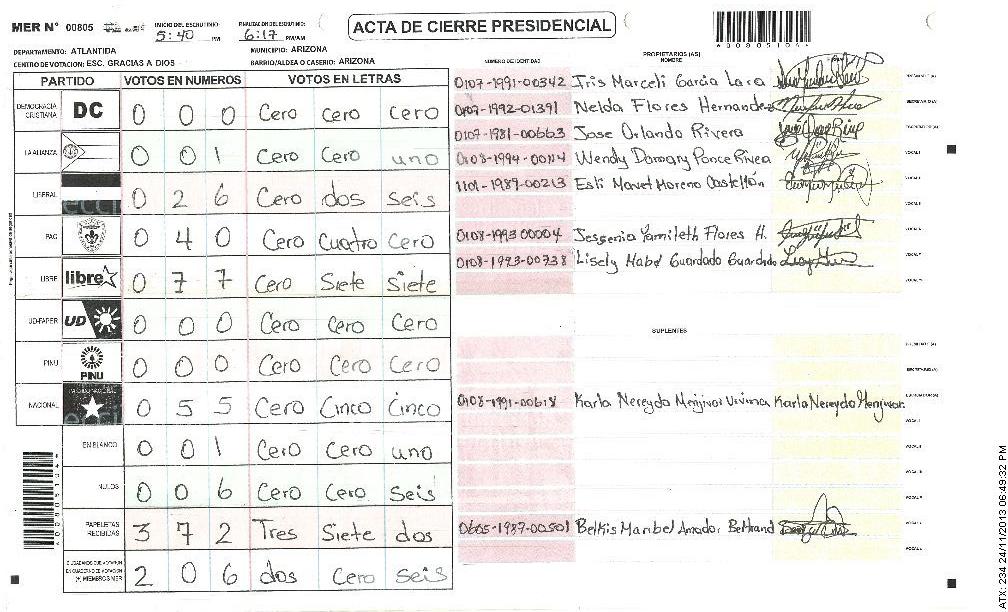 MER N° 00805 INICIO DEL ESCRUTINIO: 5:40 PM FINALIZACION DEL ESCRUTINIO: 6:17 PM/AM ACTA DE CIERRE PRESIDENCIAL
DEPARTAMENTO: ATLANTIDA MUNICIPIO: ARIZONA
CENTRO DE VOTACION: ESC. GRACIAS A DIOS BARRIO/ALDEA O CASERIO: ARIZONA
PARTIDO VOTOS EN NUMEROS VOTOS EN LETRAS
DEMOCRACIA CRISTIANA DC 0 0 0 Cero Cero Cero
LA ALIANZA 0 0 1 Cero Cero uno
LIBERAL 0 2 6 Cero dos seis
PAC 0 4 0 Cero Cuatro Cero
LIBRE libre 0 7 7 Cero Siete Siete
UD-FAPER UD 0 0 0 Cero Cero Cero
PINU PINU 0 0 0 Cero Cero Cero
NACIONAL 0 5 5 Cero Cinco Cinco
EN BLANCO 0 0 1 Cero Cero uno
NULOS 0 0 6 Cero Cero Seis
PAPELETAS RECIBIDAS 3 7 2 Tres Siete dos
CIUDADANOS QUE VOTARON EN CUADERNO DE VOTACION (+) MIEMBROS MER 2 0 6 dos Cero seis
NUMERO DE IDENTIDAD PROPIETARIOS (AS) NOMBRE
0107-1991-00342 Iris Marceli Garcia Lara
0107-1992-01391 Nelda Flores Hernandez
0107-1981-00663 Jose Orlando Rivera
0108-1994-00114 Wendy Ponce
1101-1989-00213 Esli Moreno Castellón
0108-1993 00004 Jessenia Yamileth Flores H.
0108-1993-00738 Lisely Guardado Guardado
SUPLENTES
0108-1991-00618 Karla Nereyda Menjivar Karla Nereyda Menjivar
0605-1987-00501 Belkis Maribel Amador Beltrand
*00805104*
ATX: 234 24/11/2013 06:49:32 PM